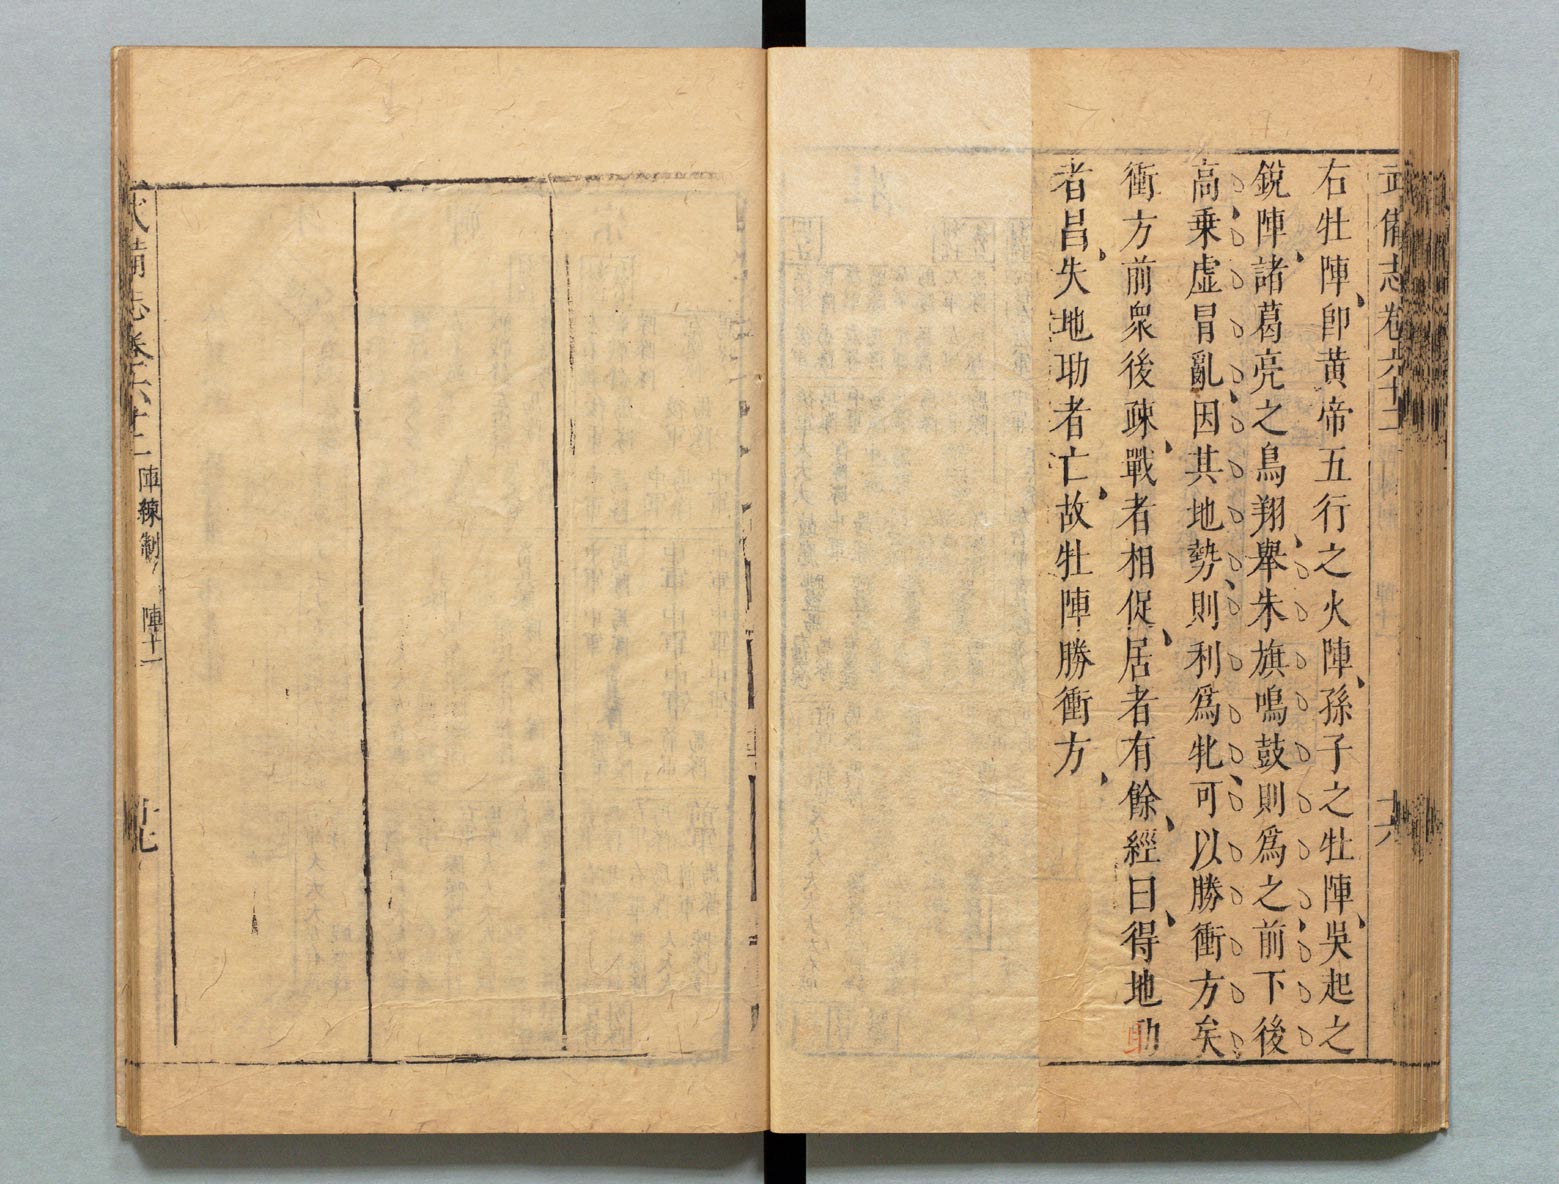 武備志卷六十二
十六
右牡陣、卽黃帝五行之火陣、孫子之牡陣、吳起之
銳陣、諸葛亮之鳥翔、舉朱旗鳴鼓則爲之前、下後
高、乗虛冒亂、因其地勢、則利爲牝、可以勝衝方矣
衝方前衆後疎、戰者相促、居者有餘、經曰、得地助
者昌、失地助者亡、故牡陣勝衝方、
武備志卷六十二
陣練制
陣十一
十七